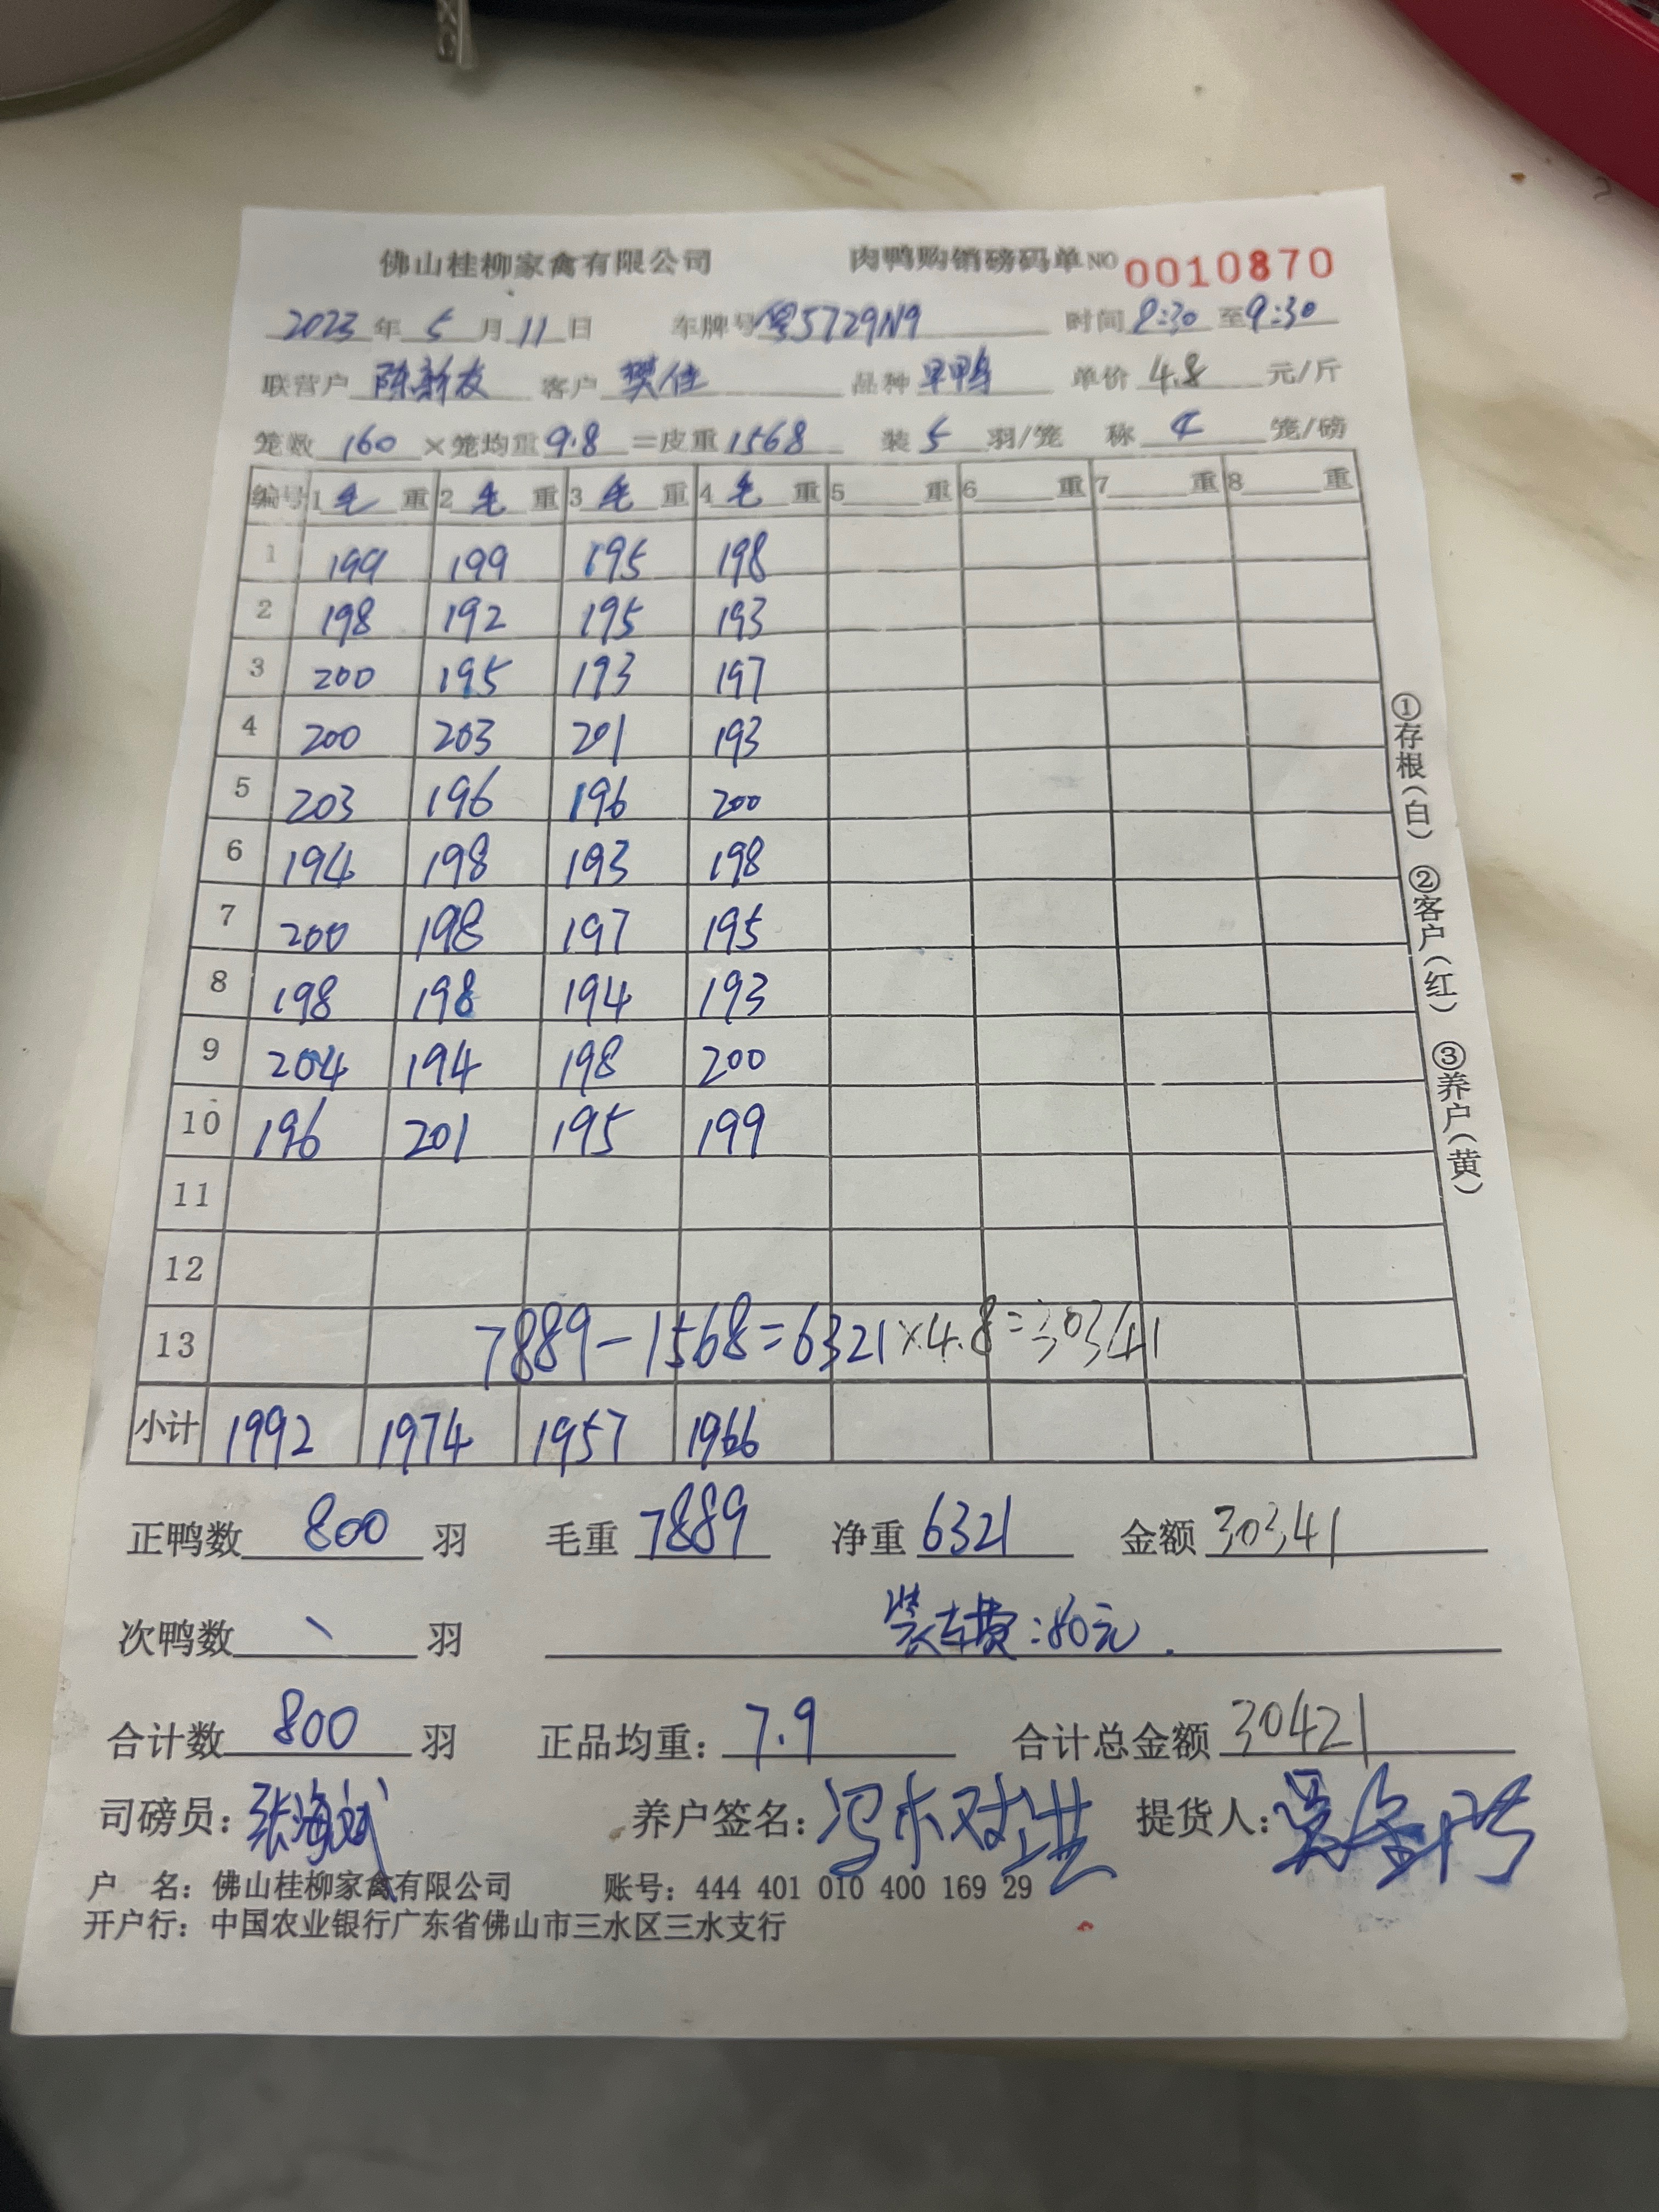 佛山桂柳家禽有限公司 肉鸭购销磅码单 NO 0010870
2023年5月11日 车牌号粤5729N9 时间8:30至9:30
联营户 陈新友 客户 樊佳 品种 旱鸭 单价 4.8 元/斤
笼数 160 ×笼均重 9.8 =皮重 1568 装 5 羽/笼 称 4 笼/磅
编号 1毛重 2毛重 3毛重 4毛重 5 重 6 重 7 重 8 重
1 199 199 195 198
2 198 192 195 193
3 200 195 193 197
4 200 203 201 193
5 203 196 196 200
6 194 198 193 198
7 200 198 197 195
8 198 198 194 193
9 204 194 198 200
10 196 201 195 199
11
12
13 7889-1568=6321×4.8=30341
小计 1992 1974 1957 1966
正鸭数 800 羽 毛重 7889 净重 6321 金额 30341
次鸭数 、 羽 装车费:80元.
合计数 800 羽 正品均重: 7.9 合计总金额 30421
司磅员: 张海斌 养户签名: 提货人:
户 名: 佛山桂柳家禽有限公司 账号: 444 401 010 400 169 29
开户行: 中国农业银行广东省佛山市三水区三水支行
①存根(白) ②客户(红) ③养户(黄)